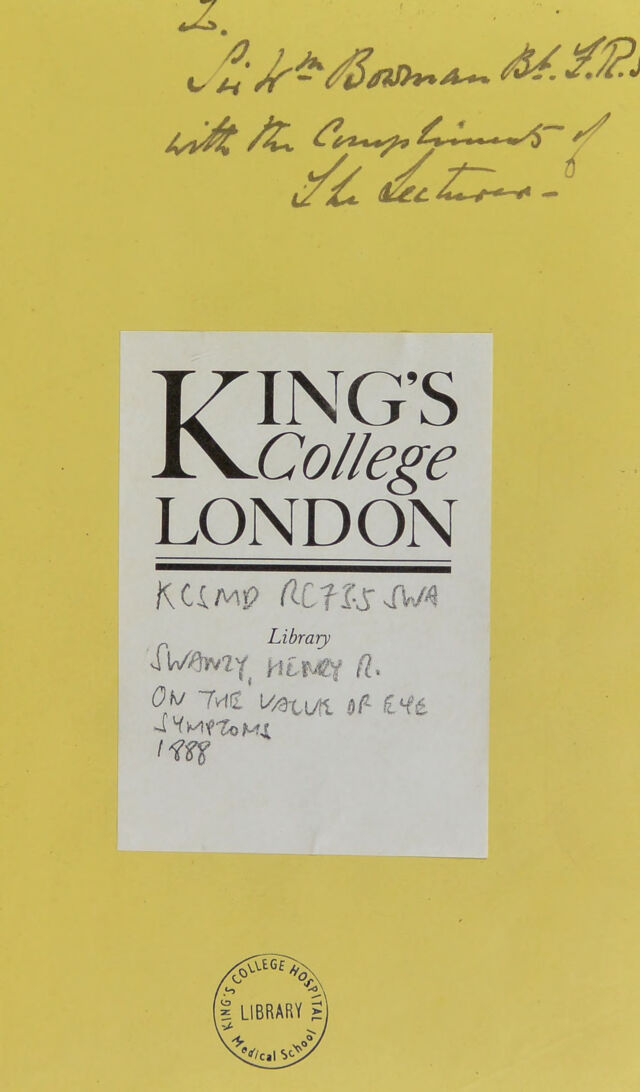 Sir Wm Bowman Bt. F.R.S
with the Compliments of
The Lecturer -
KING'S
College
LONDON
KCSMD RC73.5 SWA
Library
SWANZY, HENRY R.
ON THE VALUE OF EYE
SYMPTOMS
1888
KING'S COLLEGE HOSPITAL
LIBRARY
Medical School